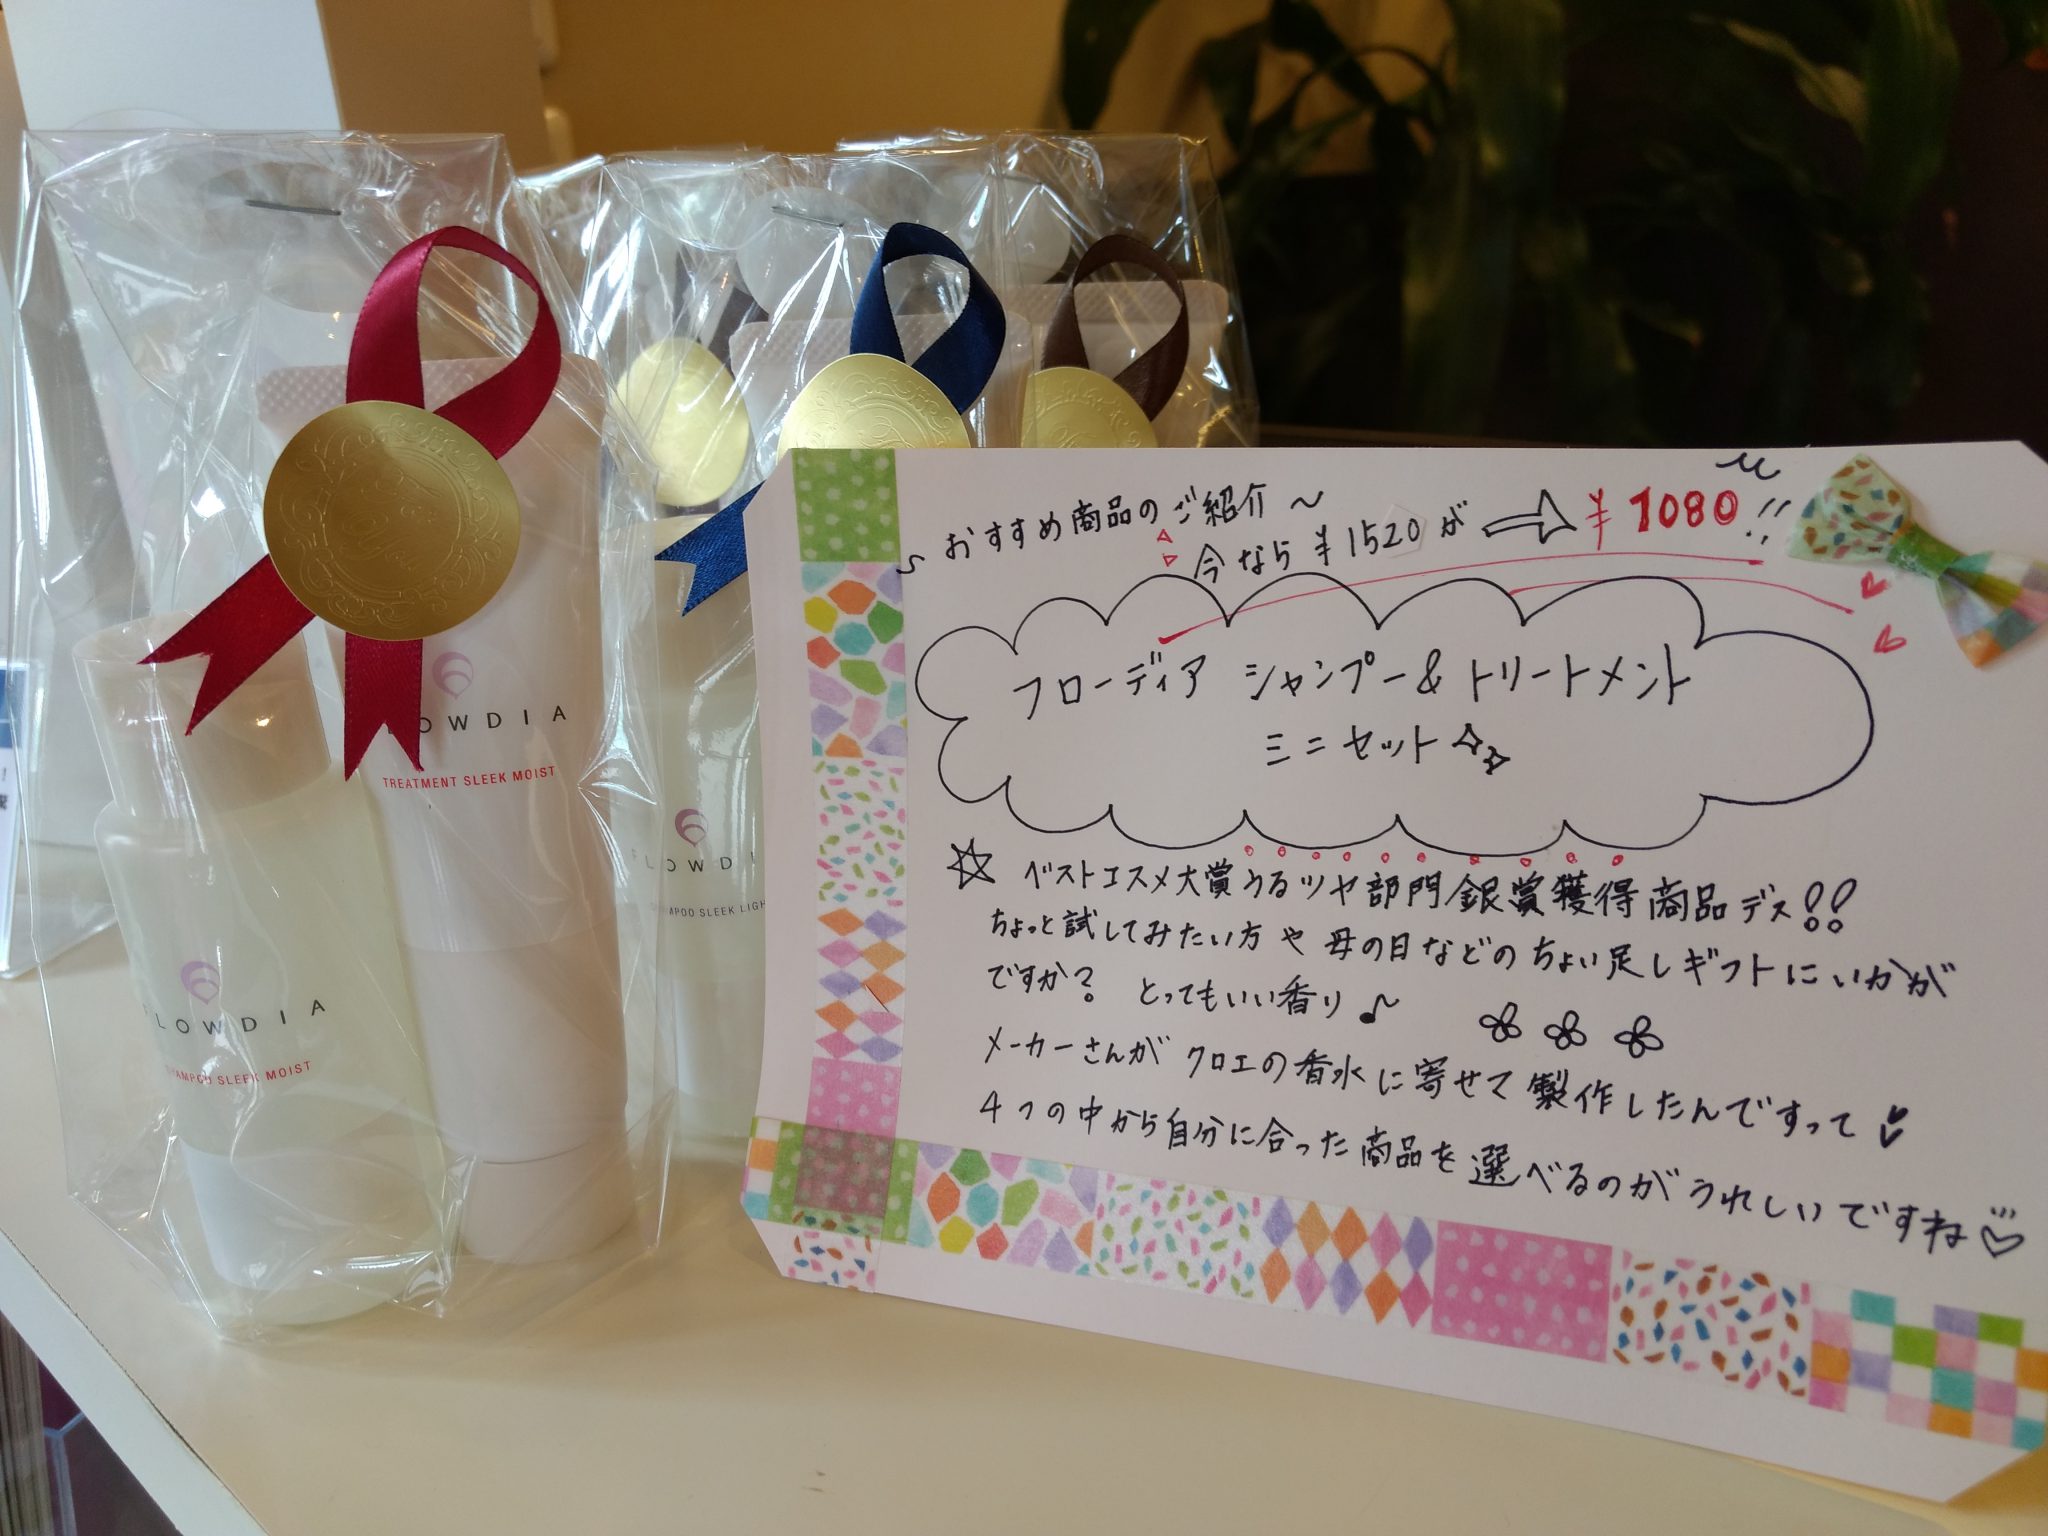 FLOWDIA
TREATMENT SLEEK MOIST
FLOWDIA
SHAMPOO SLEEK MOIST
FLOWDI
SHAMPOO SLEEK LIGH
おすすめ商品のご紹介～
今なら¥1520が⇒¥1080!!
フローディア シャンプー&トリートメント
ミニセット
☆ ベストコスメ大賞うるツヤ部門銀賞獲得商品デス!!
ちょっと試してみたい方や母の日などのちょい足しギフトにいかが
ですか? とってもいい香り♪
メーカーさんがクロエの香水に寄せて製作したんですって
4つの中から自分に合った商品を選べるのがうれしいですね♡